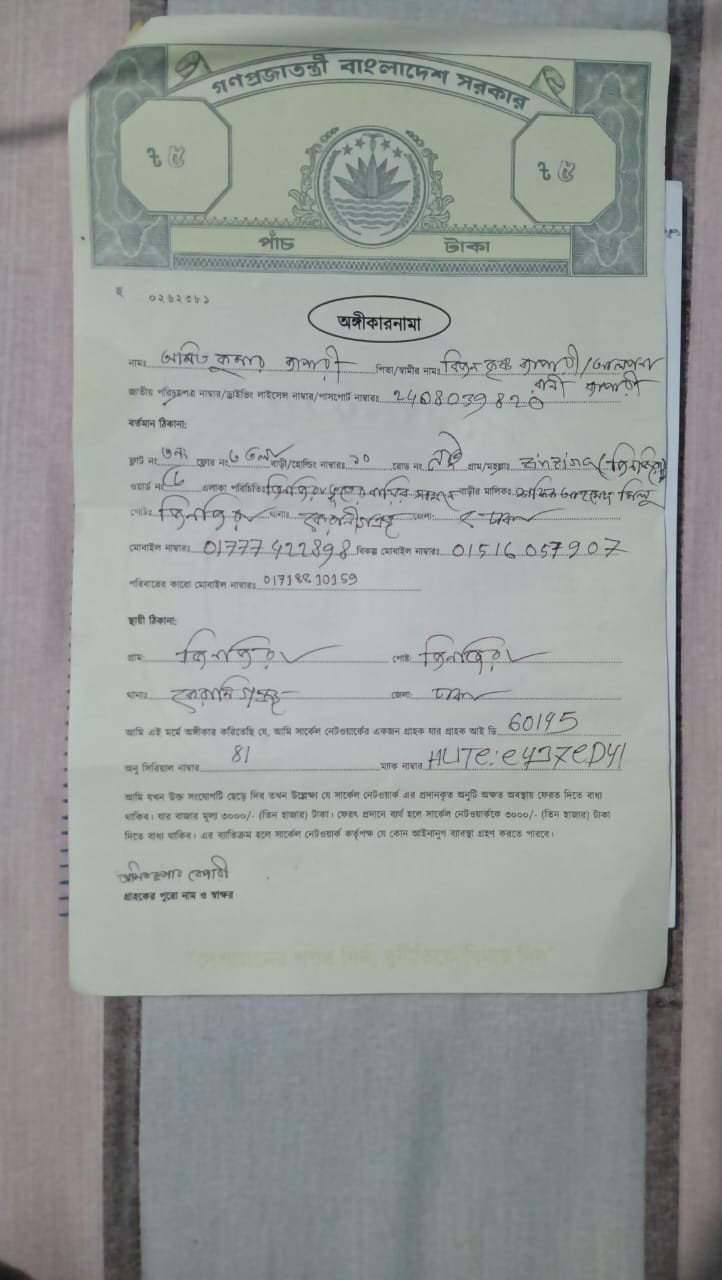 গণপ্রজাতন্ত্রী বাংলাদেশ সরকার
৳ ৫ ৳ ৫
পাঁচ টাকা
০২৬২৩৮১
অঙ্গীকারনামা
নামঃ অমিত কুমার ব্যাপারী পিতা/স্বামীর নামঃ কৃষ্ণ ব্যাপারী/আলপনা
রানী ব্যাপারী
জাতীয় পরিচয়পত্র নাম্বার/ড্রাইভিং লাইসেন্স নাম্বার/পাসপোর্ট নাম্বারঃ 2408039820
বর্তমান ঠিকানা:
ফ্লাট নং ফ্লোর নং বাড়ী/হোল্ডিং নাম্বারঃ ১০ রোড নং নাই গ্রাম/মহল্লাঃ
ওয়ার্ড নং এলাকা পরিচিতিঃ জিনজিরা বাড়ীর মালিকঃ
পোষ্টঃ জিনজিরা থানাঃ কেরানীগঞ্জ জেলাঃ ঢাকা
মোবাইল নাম্বারঃ 01777422898 বিকল্প মোবাইল নাম্বারঃ 01516057907
পরিবারের কারো মোবাইল নাম্বারঃ
স্থায়ী ঠিকানা:
গ্রামঃ জিনজিরা পোষ্টঃ জিনজিরা
থানাঃ কেরানিগঞ্জ জেলাঃ ঢাকা
আমি এই মর্মে অঙ্গীকার করিতেছি যে, আমি সার্কেল নেটওয়ার্কের একজন গ্রাহক যার গ্রাহক আই ডি 60195
অনু সিরিয়াল নাম্বার 81 ম্যাক নাম্বার
আমি যখন উক্ত সংযোগটি ছেড়ে দিব তখন উল্লেক্ষ্য যে সার্কেল নেটওয়ার্ক এর প্রদানকৃত অনুটি অক্ষত অবস্থায় ফেরত দিতে বাধ্য
থাকিব। যার বাজার মূল্য ৩০০০/- (তিন হাজার) টাকা। ফেরৎ প্রদানে ব্যর্থ হলে সার্কেল নেটওয়ার্ককে ৩০০০/- (তিন হাজার) টাকা
দিতে বাধ্য থাকিব। এর ব্যতিক্রম হলে সার্কেল নেটওয়ার্ক কর্তৃপক্ষ যে কোন আইনানুগ ব্যবস্থা গ্রহণ করতে পারবে।
অমিত কুমার বেপারী
গ্রাহকের পুরো নাম ও স্বাক্ষর